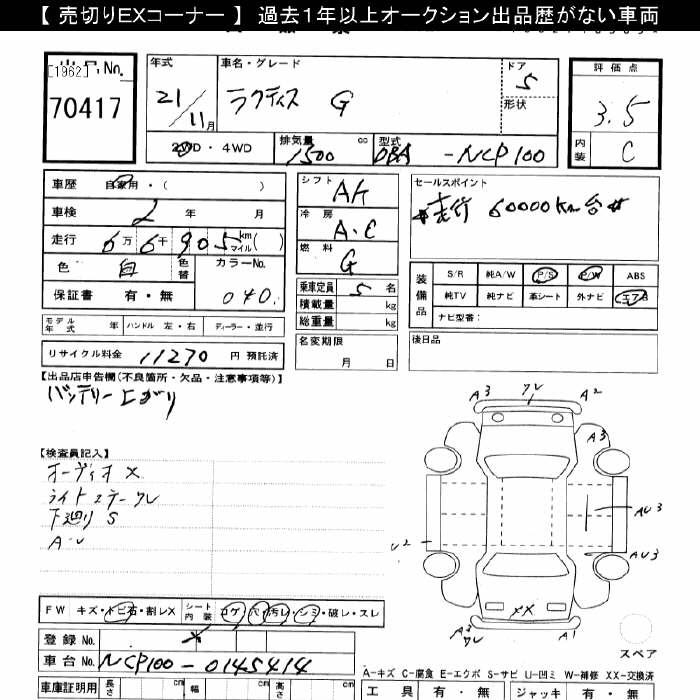 【 売切りEXコーナー 】 過去1年以上オークション出品歴がない車両
[1962] 出品No.
70417
年式
21/11月
車名・グレード
ラクティス G
ドア
5
形状
評価点
3.5
内装
C
2WD ・ 4WD
排気量
1500 cc
型式
DBA - NCP100
車歴 自家用・( )
車検 2 年 月
走行 6万 6千 905 km マイル( )
色 白 色替
カラーNo.
040
保証書 有・無
シフト
AT
冷房
A.C
燃料
G
乗車定員 5 名
積載量 kg
総重量 kg
セールスポイント
走行 60000km台
装備品
S/R 純A/W P/S P/W ABS
純TV 純ナビ 革シート 外ナビ エアB
ナビ型番:
モデル年式 年 ハンドル 左・右 ディーラー・並行
リサイクル料金 11270 円 預託済
名変期限
月 日
後日品
【出品店申告欄(不良箇所・欠品・注意事項等)】
バッテリー上がり
【検査員記入】
オーディオ X
ライトステークレ
下廻り S
A・U
A3 ワレ A2
A3
AU3
U2
AU3
XX
A3 ワレ
A1
スペア
FW キズ・トビ石・割レX シート内装 コゲ・穴・汚レ・シミ・破レ・スレ
登録No.
車台No. NCP100-0145414
車庫証明用 長さ cm 幅 cm 高さ cm
A-キズ C-腐食 E-エクボ S-サビ U-凹ミ W-補修 XX-交換済
工具 有・無 ジャッキ 有・無